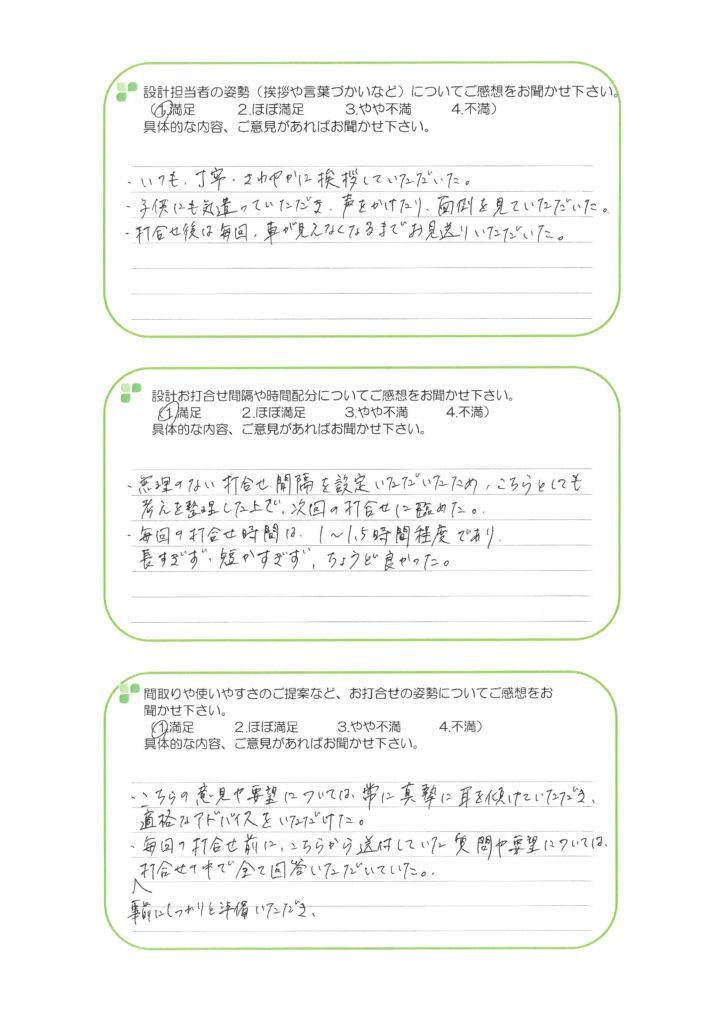 設計担当者の姿勢（挨拶や言葉づかいなど）についてご感想をお聞かせ下さい。
（1.満足　2.ほぼ満足　3.やや不満　4.不満）
具体的な内容、ご意見があればお聞かせ下さい。
・いつも、丁寧・さわやかに挨拶していただいた。
・子供にも気遣っていただき、声をかけたり、面倒を見ていただいた。
・打合せ後は毎回、車が見えなくなるまでお見送りいただいた。
設計お打合せ間隔や時間配分についてご感想をお聞かせ下さい。
（1.満足　2.ほぼ満足　3.やや不満　4.不満）
具体的な内容、ご意見があればお聞かせ下さい。
・無理のない打合せ間隔を設定いただいたため、こちらとしても
考えを整理した上で、次回の打合せに臨めた。
・毎回の打合せ時間は、1～1.5時間程度であり、
長すぎず・短かすぎず、ちょうど良かった。
間取りや使いやすさのご提案など、お打合せの姿勢についてご感想をお
聞かせ下さい。
（1.満足　2.ほぼ満足　3.やや不満　4.不満）
具体的な内容、ご意見があればお聞かせ下さい。
・こちらの意見や要望については、常に真摯に耳を傾けていただき、
適格なアドバイスをいただけた。
・毎回の打合せ前に、こちらから送付していた質問や要望については、
打合せの中で全て回答いただいていた。
事前にしっかりと準備いただき、